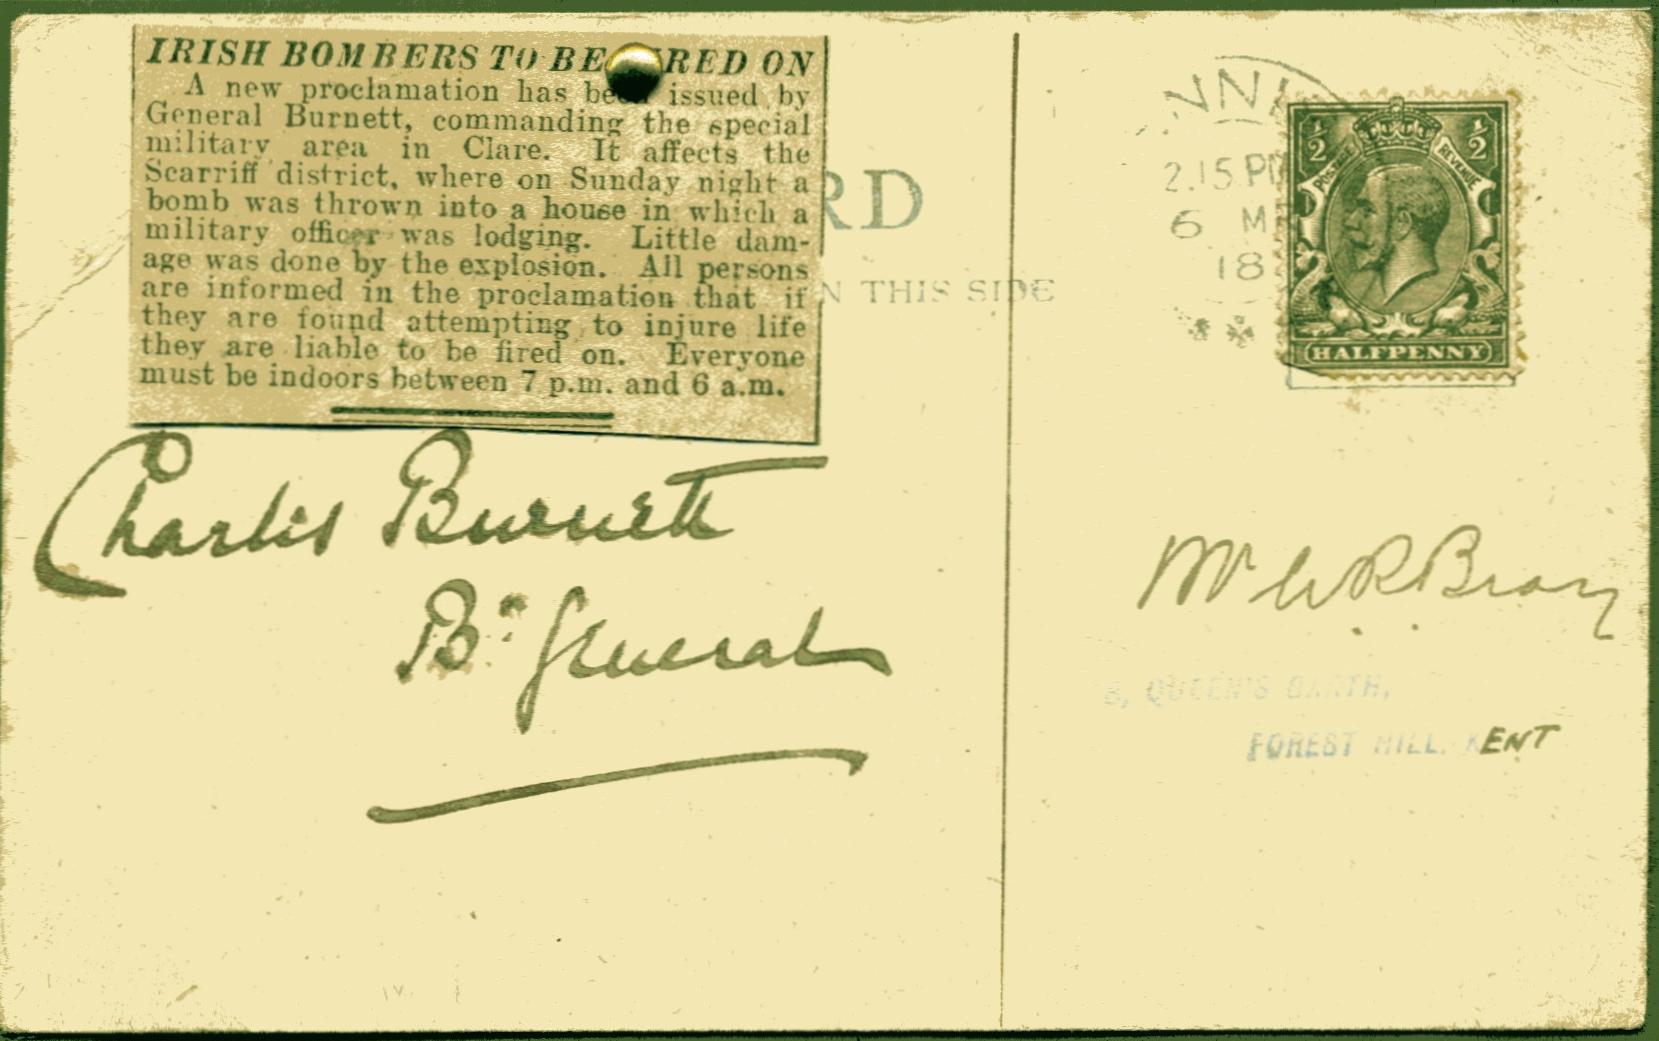 IRISH BOMBERS TO BE RED ON
A new proclamation has been issued by
General Burnett, commanding the special
military area in Clare. It affects the
Scarriff district, where on Sunday night a
bomb was thrown into a house in which a
military officer was lodging. Little dam-
age was done by the explosion. All persons
are informed in the proclamation that if
they are found attempting to injure life
they are liable to be fired on. Everyone
must be indoors between 7 p.m. and 6 a.m.
RD
N THIS SIDE
Charles Burnett
Br. General
NNI
2.15 PM
6 M
18
½ ½
POSTAGE REVENUE
HALFPENNY
Mr W R Bray
8, QUEEN'S GARTH,
FOREST HILL. KENT